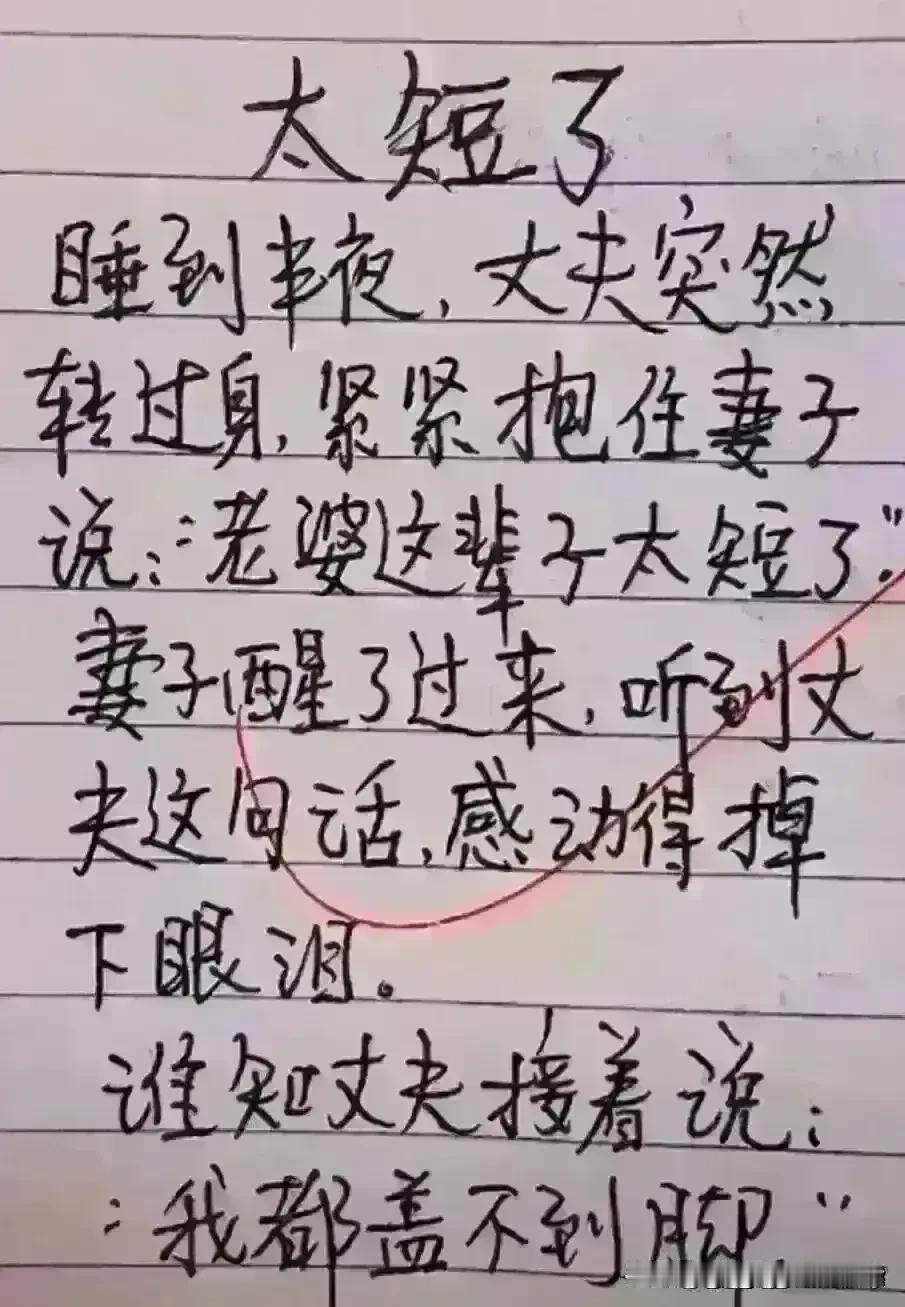 太短了
睡到半夜,丈夫突然
转过身,紧紧抱住妻子
说:“老婆这辈子太短了”.
妻子醒了过来,听到丈
夫这句话,感动得掉
下眼泪。
谁知丈夫接着说:
“我都盖不到脚”